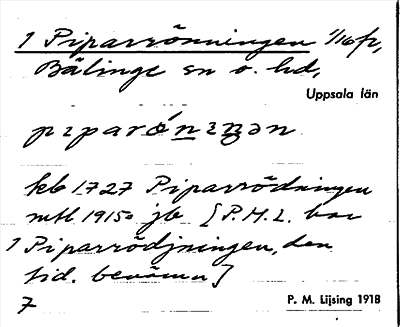 1 Piparrönningen 1/16 fr,
Bälinge sn o. hd,
Uppsala län
pıparónıŋən
kb 1727 Piparrödningen
mtl 1915 jb [P.M.L. har
1 Piparrödjningen, den
tid. benämn]
7
P. M. Lijsing 1918